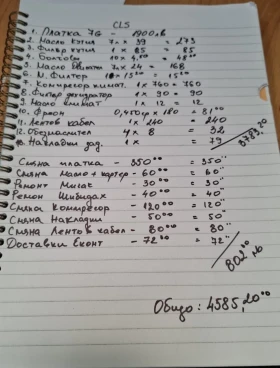 CLS
1. Платка 7G - 1900лв
2. Масло кутия 7 x 39 = 273
3. Филтр кутия 1 x 85 = 85
4. Болтове 10 x 4,80 = 48⁰⁰
5. Масло 7 x 24 = 168
6. М. Филтер 1 x 15⁰⁰ = 15⁰⁰
7. Компресор климат. 1 x 760 = 760
8. Филтър дехидратор 1 x 90 = 90
9. Масло климат 1 x 12 = 12
10. Фреон 0,450гр x 180 = 81⁰⁰
11. Лентов кабел 1 x 240 = 240
12. Обезмаслител 4 x 8 = 32
13. Накладки зад. 1 x = 79
3783,20
Смяна платка - 350⁰⁰ = 350
Смяна масло + картер - 60⁰⁰ = 60
Ремонт Мигач - 30⁰⁰ = 30
Ремон Шибидах - 40⁰⁰ = 40
Смяна Компресор - 120⁰⁰ = 120
Смяна Накладки - 50⁰⁰ = 50
Смяна Лентов кабел - 80⁰⁰ = 80
Доставки Еконт - 72⁰⁰ = 72
802⁰⁰ лв
Общо: 4585,20лв